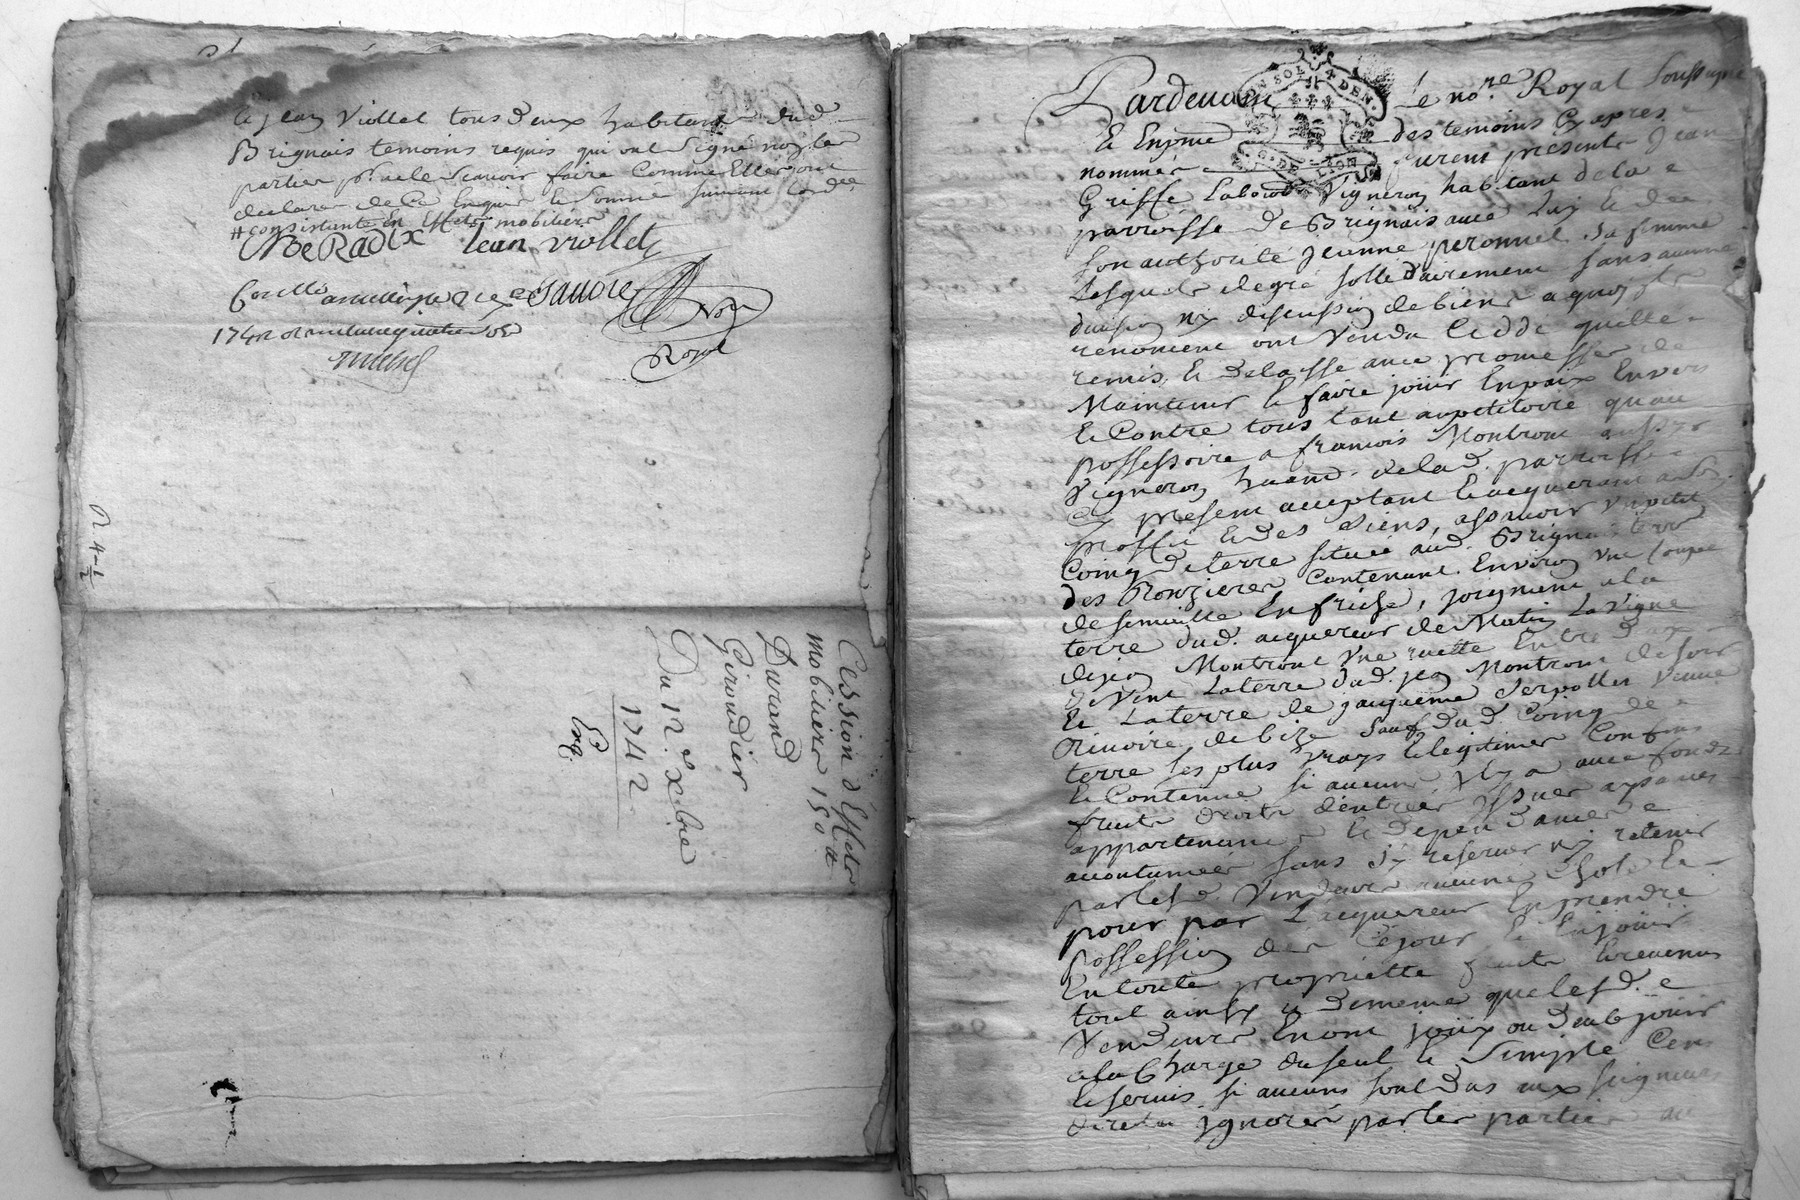 et Jean Viollet tous deux habitans dud.
Brignais temoins requis qui ont signé non les
parties p. ne le scavoir faire comme elles ont
declaré de ce enquis et sommé suivant lord.ce
# consistante en Effets mobiliers
Noe Radix Jean viollet
Savoie
Nore
Royal
R 4 1/2
Cession d'Effets
mobiliers 150 #
Durand
Giroudier
Du 12.e xbre
1742
Exp.
Pardevant le no.re Royal soussigné
SOL 4 DEN.
G. DE LION
Et En pnce des temoins cy apres
nommés furent presents Jean
Griffe Laboureur Vigneron habitant de la
parroisse de Brignais avec luy et de
son authorité Jeanne peronnel sa femme
Lesquels de gré sollidairement sans aucune
division ny discussion de biens a quoy ils
renoncent ont Vendu Ceddé quitté
remis, et delaissé avec promesses de
Maintenir et faire joüir En paix Envers
et Contre tous tant au petitoire qu'au
possessoire a francois Montront aussy
Vigneron hitant de lad. parroisse
cy present acceptant et acquerant a son
proffit et des siens, assavoir Un petit
Coing de terre situé aud. Brignais terroir
des Ronzieres Contenant Environ une Coupée
de semaille En friche, joignant a la
terre dud. acquereur de Matin La Vigne
de jean Montront Une ruette Entre deux
de Vent La terre dud. jean Montront de soir
Et La terre de jacqueme Serpollet Veuve
Rivoire, de bize sauf dud. Coing de
terre ses plus Vrays et legitimes Confins
et Contenue si aucuns y en a avec fonds
fruits droits d'entrées, Issues aysances
appartenances et Dependances
accoutumées sans s'y reserver ny retenir
par lesd. Vendeurs aucune chose Et
pour par L'acquereur En prendre
possession des Ce jour et En joüir
En toute proprietté fruits Et revenus
tout ainsy et de meme que lesd.
Vendeurs En ont joüy ou deub joüir
a la Charge du seul et Simple Cens
et servis si aucuns sont dus aux seigneurs
directs ignorés par les parties